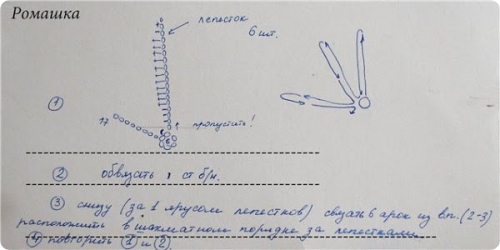 Ромашка
лепесток
6 шт.
①
17
пропустить!
② обвязать 1 ст б/н.
③ снизу (за 1 ярусом лепестков) связать 6 арок из в.п. (2-3)
расположить в шахматном порядке за лепестками.
④ повторить ① и ②